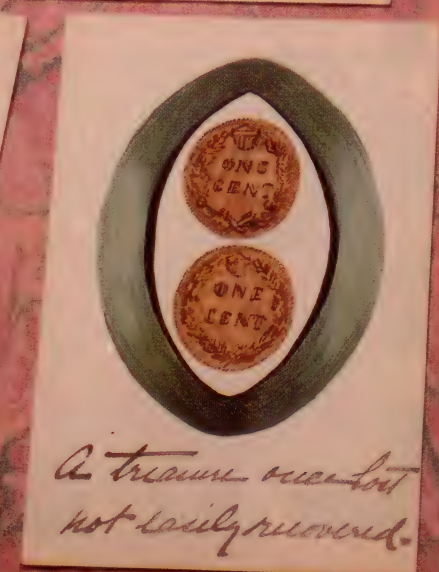 ONE
CENT
ONE
CENT
A treasure once lost
not easily recovered.